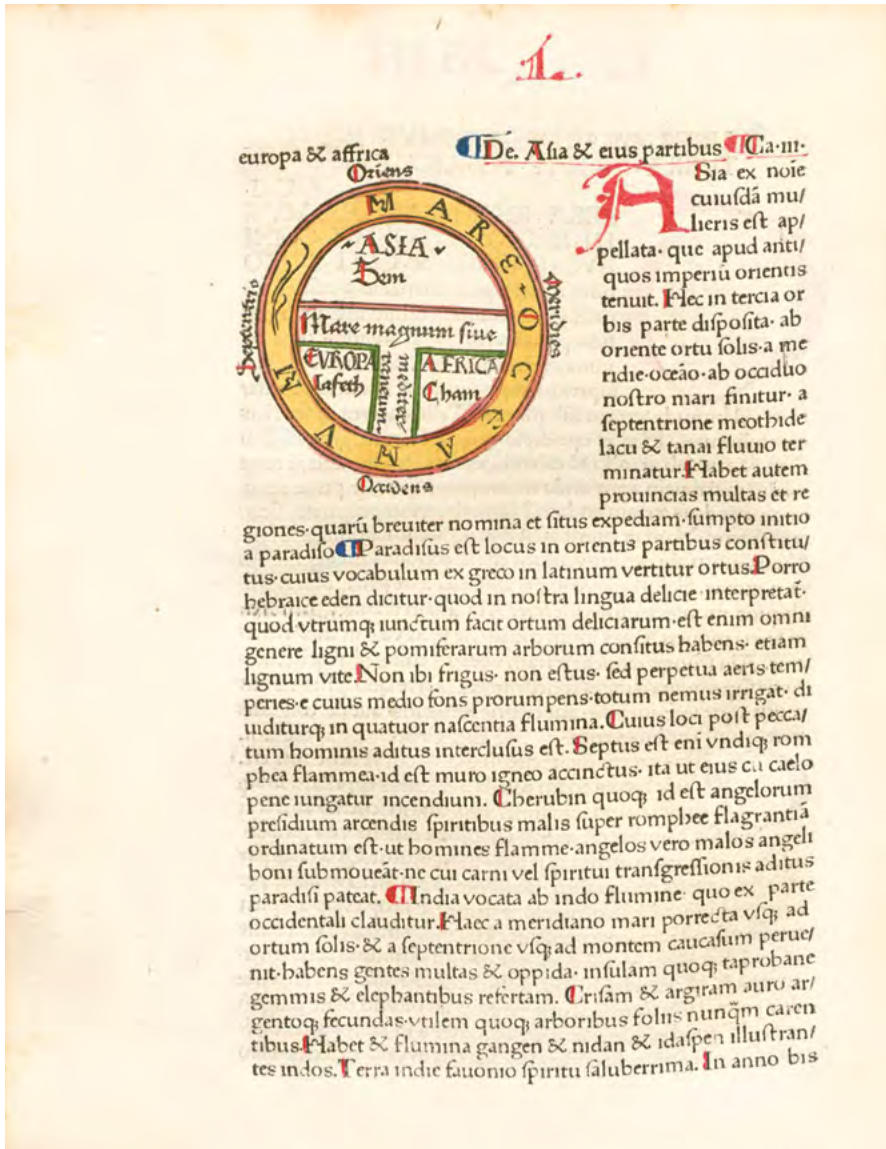 1.
europa & affrica
¶De. Asia & eius partibus ¶Ca·iii·
Oriens
MARE·OCEANVM
Septentrio
Meridies
ASIA
Sem
Mare magnum siue
mediterraneum
EVROPA
Iafeth
AFRICA
Cham
Occidens
ASia ex noīe
cuiusdā mu/
lieris est ap/
pellata· que apud anti/
quos imperiū orientis
tenuit. Hec in tercia or
bis parte disposita· ab
oriente ortu solis·a me
ridie·oceāo·ab occiduo
nostro mari finitur· a
septentrione meothide
lacu & tanai fluuio ter
minatur. Habet autem
prouincias multas et re
giones·quarū breuiter nomina et situs expediam·sumpto initio
a paradiso ¶Paradisus est locus in orientis partibus constitu/
tus·cuius vocabulum ex greco in latinum vertitur ortus. Porro
hebraice eden dicitur·quod in nostra lingua delicie interpretat̄·
quod vtrumqꝫ iunctum facit ortum deliciarum·est enim omni
genere ligni & pomiferarum arborum consitus habens· etiam
lignum vite. Non ibi frigus· non estus· sed perpetua aeris tem/
peries·e cuius medio fons prorumpens·totum nemus irrigat· di
uiditurqꝫ in quatuor nascentia flumina. Cuius loci post pecca/
tum hominis aditus interclusus est. Septus est eni vndiqꝫ rom
phea flammea·id est muro igneo accinctus· ita ut eius cū caelo
pene iungatur incendium. Cherubin quoqꝫ id est angelorum
presidium arcendis spiritibus malis super romphee flagrantiā
ordinatum est·ut homines flamme·angelos vero malos angeli
boni submoueāt·ne cui carni vel spiritui transgressionis aditus
paradisi pateat. ¶India vocata ab indo flumine· quo ex parte
occidentali clauditur. Haec a meridiano mari porrecta vsqꝫ ad
ortum solis·& a septentrione vsqꝫ ad montem caucasum perue/
nit·habens gentes multas & oppida· insulam quoqꝫ taprobane
gemmis & elephantibus refertam. Crisam & argiram auro ar/
gentoqꝫ fecundas·vtilem quoqꝫ arboribus foliis nunq̄m caren
tibus. Habet & flumina gangen & nidan & idaspen illustran/
tes indos. Terra indie fauonio spiritu saluberrima. In anno bis